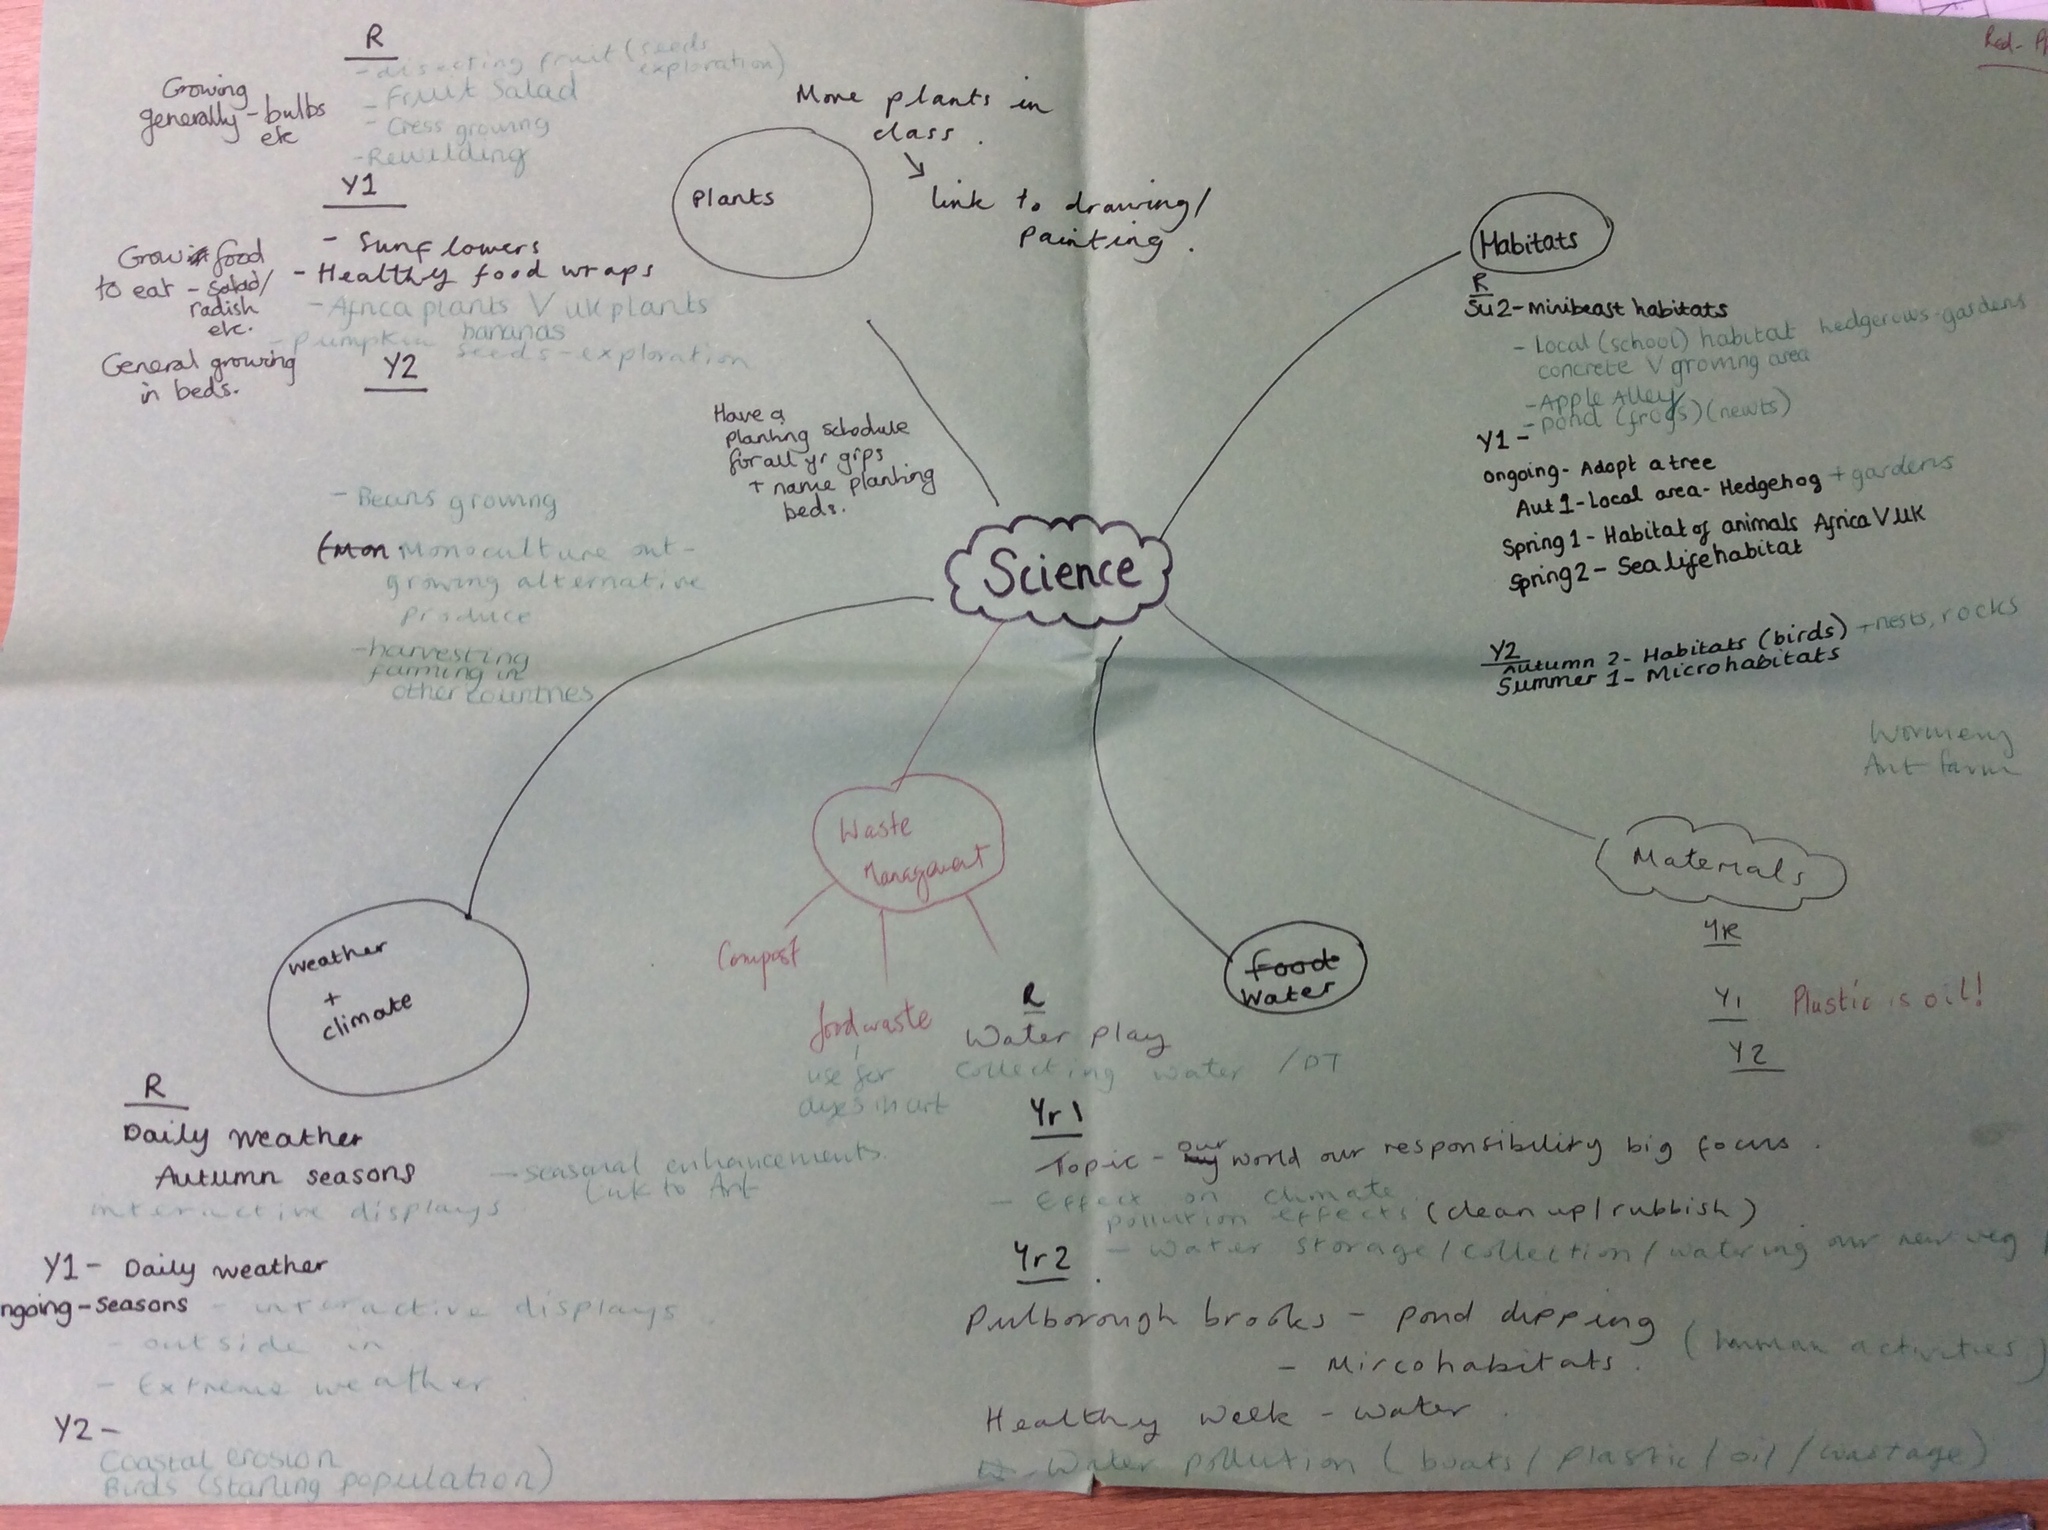 R
- disecting fruit (seeds exploration)
- Fruit Salad
- Cress growing
- Rewilding
Growing
generally - bulbs
etc
Y1
- Sunflowers
- Healthy food wraps
- Africa plants V uk plants
bananas
- Pumpkin seeds - exploration
Grow food
to eat - salad/
radish
etc.
General growing
in beds.
Y2
- Beans growing
Monoculture out-
growing alternative
produce
- harvesting
farming in
other countries
Plants
More plants in
class.
link to drawing/
painting.
Have a
planting schedule
for all yr grps
+ name planting
beds.
Red-
Science
Habitats
R
Su2 - minibeast habitats
- Local (school) habitat hedgerows - gardens
concrete V growing area
- Apple Alley
- pond (frogs) (newts)
Y1 -
ongoing - Adopt a tree
Aut 1 - Local area - Hedgehog + gardens
Spring 1 - Habitat of animals Africa V UK
Spring 2 - Sea life habitat
Y2
Autumn 2 - Habitats (birds) + nests, rocks
Summer 1 - Microhabitats
Wormery
Ant farm
Materials
YR
Y1 Plastic is oil!
Y2
Waste
Managment
Compost
food waste
use for
dyes in art
food
Water
R
Water play
Collecting water / DT
Yr1
Topic - my our world our responsibility big focus.
- Effect on climate
pollution effects (clean up/rubbish)
Yr2 - Water storage/collection/watering our new veg
Pulborough brooks - pond dipping
- Mircohabitats. (human activities)
Healthy week - water.
- Water pollution (boats/plastic/oil/wastage)
weather
+
climate
R
Daily weather
Autumn seasons - seasonal enhancements.
Link to Art
interactive displays
Y1 - Daily weather
ngoing - seasons - interactive displays
- outside in
- Extreme weather
Y2 -
Coastal erosion
Birds (starling population)